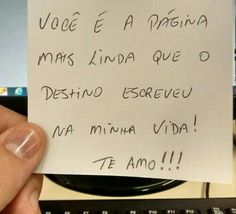 VOCÊ É A PÁGINA
MAIS LINDA QUE O
DESTINO ESCREVEU
NA MINHA VIDA!
TE AMO!!!